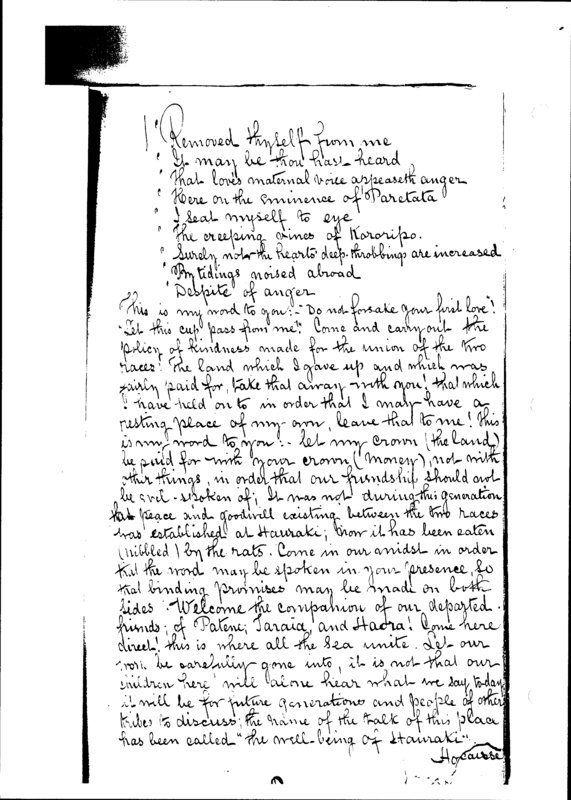 "Removed thyself from me
"It may be thou hast heard
"That love's maternal voice appeaseth anger
"Here on the eminence of Paretata
"I seat myself to eye
"The creeping vines of Kororipo.
"Surely now the hearts deep throbbings are increased
"By tidings noised abroad
"Despite of anger
This is my word to you:- "Do not forsake your first love"!
"Let this cup pass from me". Come and carry out the
policy of kindness made for the union of the two
races! The land which I gave up and which was
fairly paid for, take that away with you! that which
I have held on to in order that I may have a
resting place of my own, leave that to me! This
is my word to you:- let my crown (the land)
be paid for with your crown (money), not with
other things, in order that our friendship should not
be evil-spoken of; It was not during this generation
that peace and goodwill existing between the two races
was established at Hauraki; now it has been eaten
(nibbled) by the rats. Come in our midst in order
that the word may be spoken in your presence, so
that binding promises may be made on both
sides. Welcome the companion of our departed
friends; of Patene, Taraia, and Haora! Come here
direct! this is where all the sea unite. Let our
work be carefully gone into, it is not that our
children here will alone hear what we say today
it will be for future generations and people of other
tribes to discuss; the name of the talk of this place
has been called "the well-being of Hauraki".